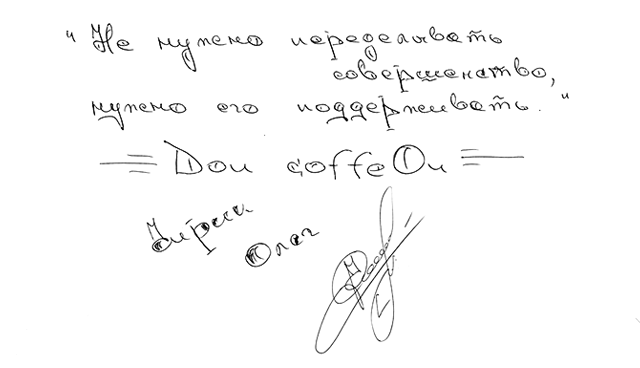 "Не нужно переделывать
совершенство,
нужно его поддерживать."
Don coffeOn
Олег